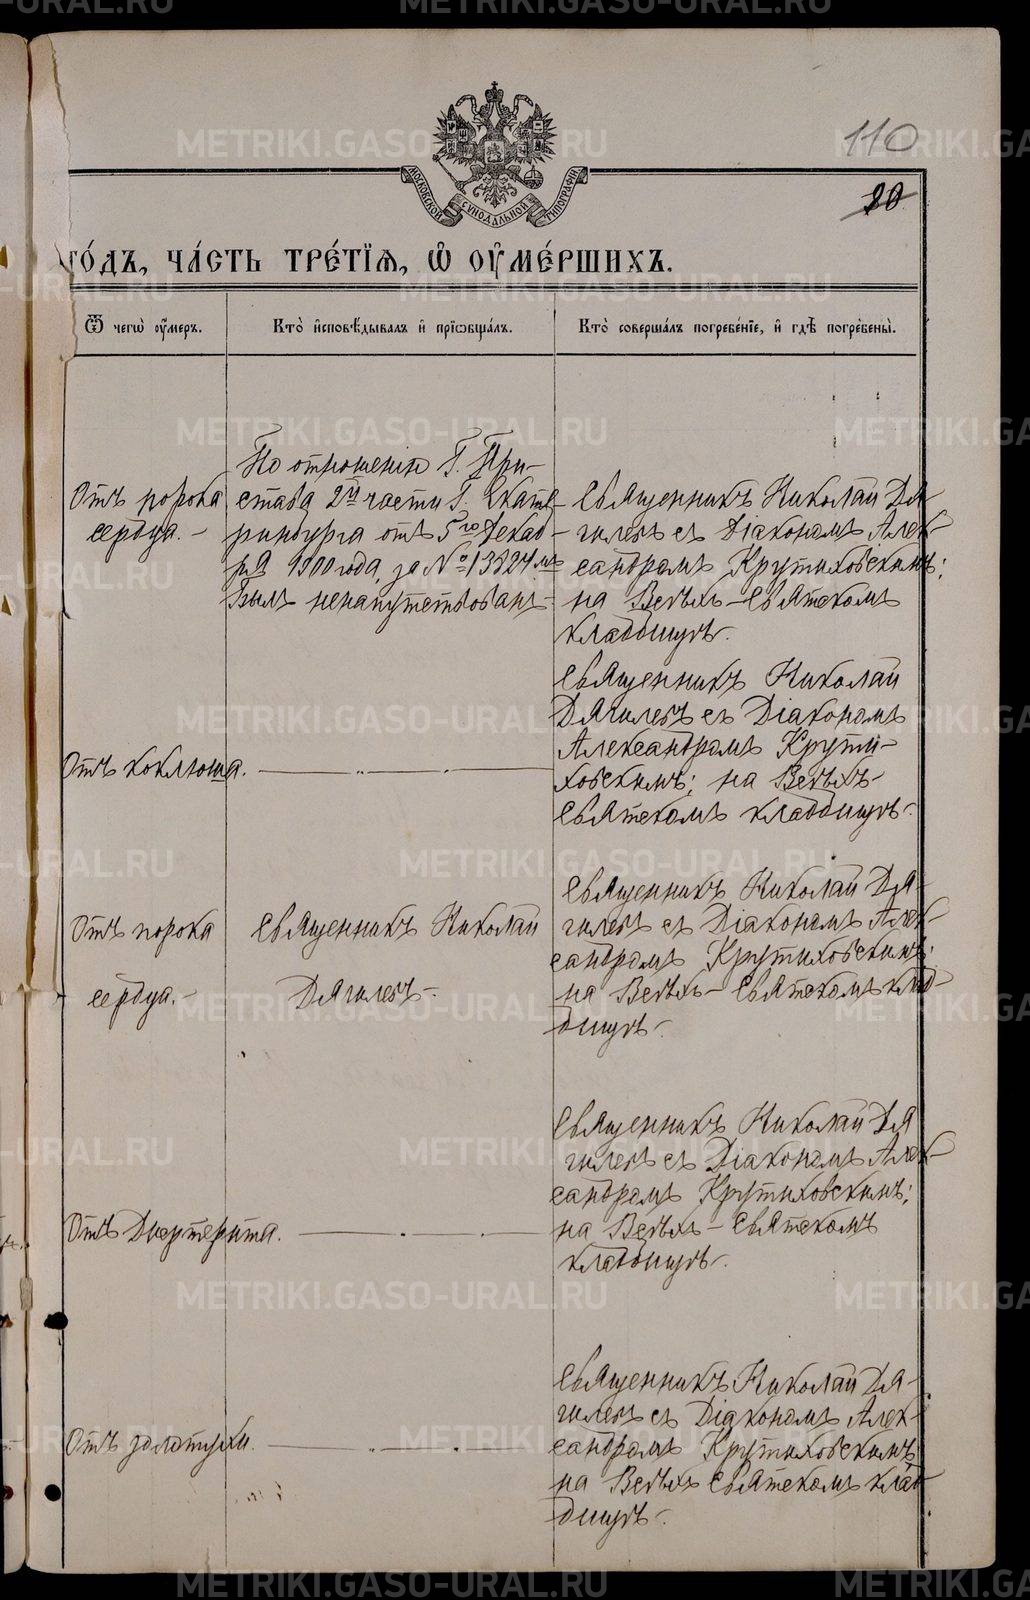 110
20
МОСКОВСКОЙ СѴНОДАЛЬНОЙ ТИПОГРАФІИ
го́дъ, ча́сть тре́тїѧ, ѡ҆ ᲂу҆ме́ршихъ.
Ѿ чегѡ̀ ᲂу҆́меръ.
Кто̀ и҆сповѣ́дывалъ и҆ прїѡбща́лъ.
Кто̀ соверша́лъ погребе́нїе, и҆ гдѣ̀ погребены̀.
Отъ порока
сердца. -
По отношенію Г. При-
става 2й части Г. Екате-
ринбурга отъ 5го декаб-
ря 1900 года, за № 13324мъ
былъ ненапутствованъ-
Священникъ Николай Дя-
гилевъ съ Діакономъ Алек-
сандромъ Крутиховскимъ;
на Всѣхъ-Святскомъ
кладбищѣ-.
Отъ коклюша.
Священникъ Николай
Дягилевъ съ Діакономъ
Александромъ Крути-
ховскимъ; на Всѣхъ-
Святскомъ кладбищѣ-.
Отъ порока
сердца.-
Священникъ Николай
Дягилевъ-.
Священникъ Николай Дя-
гилевъ съ Діакономъ Алек-
сандромъ Крутиховскимъ;
на Всѣхъ-Святскомъ клад-
бищѣ-.
Отъ Дифтерита.
Священникъ Николай Дя
гилевъ съ Діакономъ Алек-
сандромъ Крутиховскимъ;
на Всѣхъ-Святскомъ
кладбищѣ-.
Отъ золотухи.
Священникъ Николай Дя-
гилевъ съ Діакономъ Алек-
сандромъ Крутиховскимъ
на Всѣхъ Святскомъ клад-
бищѣ-.
METRIKI.GASO-URAL.RU